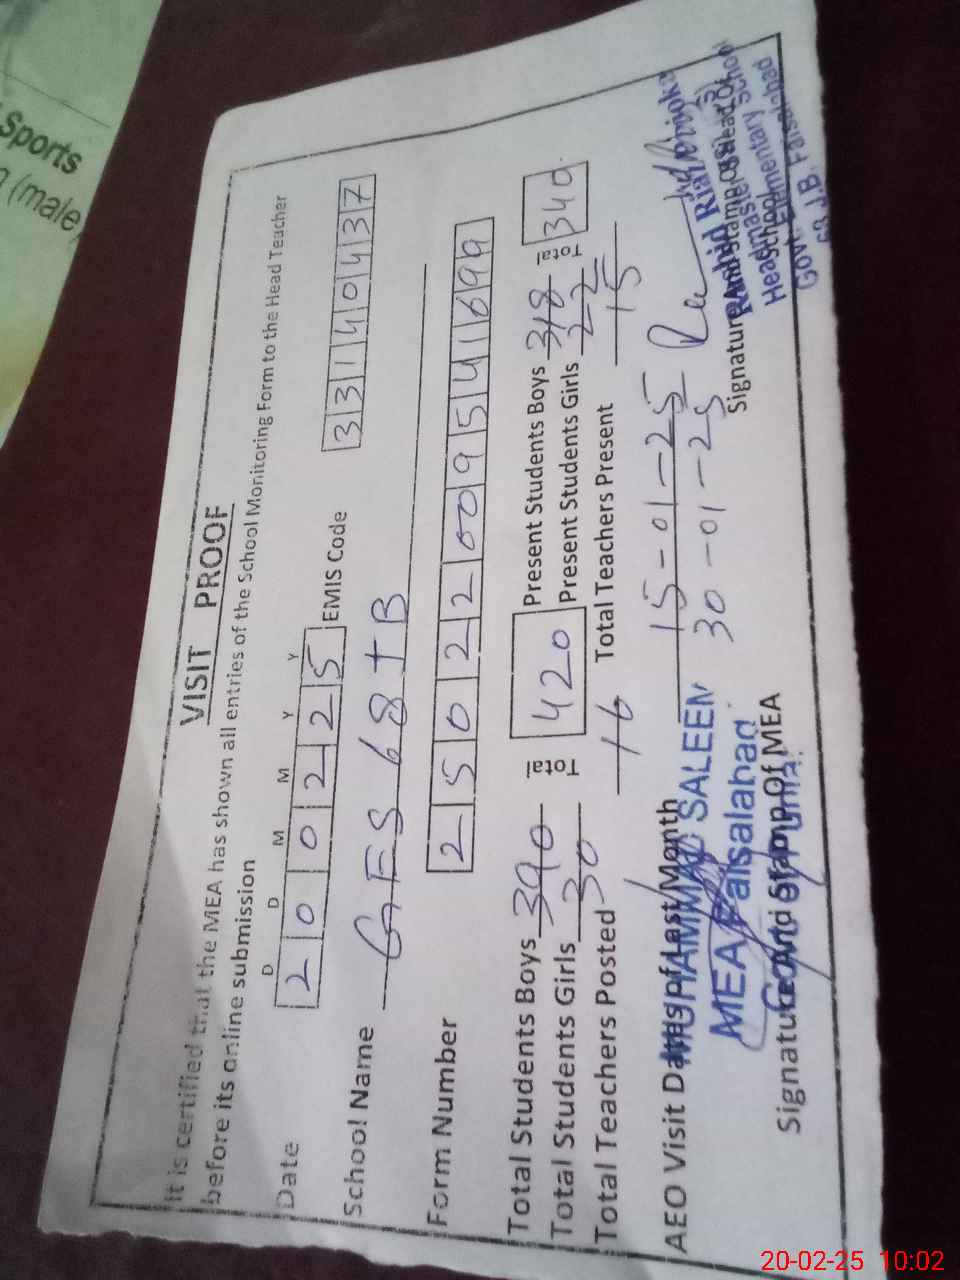 Sports
(male
VISIT PROOF
It is certified that the MEA has shown all entries of the School Monitoring Form to the Head Teacher
before its online submission
D D M M Y Y
Date 2 0 0 2 2 5 EMIS Code 3 3 1 4 0 4 3 7
School Name GES 68 JB
Form Number 2 5 0 2 2 0 0 9 5 4 1 6 9 9
Total Students Boys 390 Total 420 Present Students Boys 318 Total 340
Total Students Girls 30 Total Present Students Girls 22 Total
Total Teachers Posted 16 Total Teachers Present 15
AEO Visit Dates of Last Month 15-01-25
30-01-25
MUHAMMAD SALEEM
MEA Faisalabad
Signature And Stamp Of MEA
Signature And Stamp Of Head Of
School
Rashid Riaz
Headmaster
Govt. Elementary School
J.B. Faisalabad
20-02-25 10:02